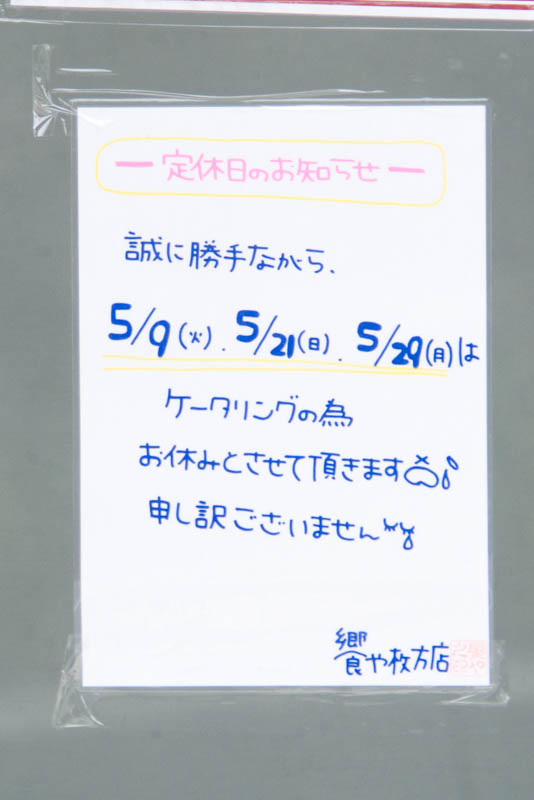 ー 定休日のお知らせ ー
誠に勝手ながら、
5/9(火). 5/21(日). 5/29(月)は
ケータリングの為
お休みとさせて頂きます
申し訳ございません
饗や枚方店